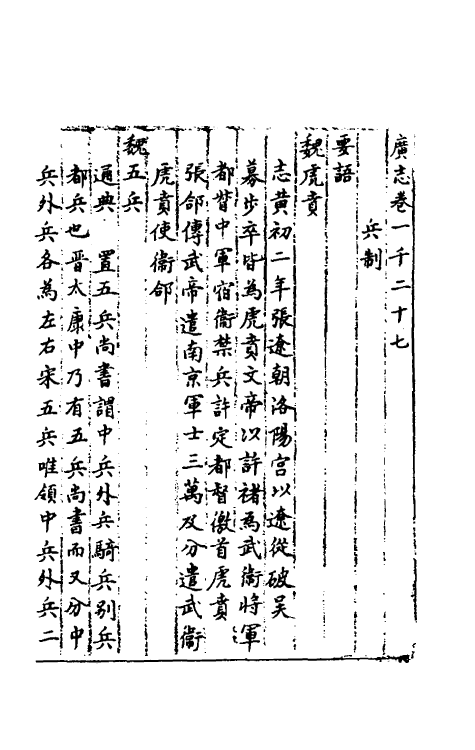 廣志卷一千二十七
兵制
要語
魏虎賁
志黃初二年張遼朝洛陽宮以遼從破吳
募步卒皆為虎賁文帝以許褚為武衞將軍
都督中軍宿衞禁兵許定都督徼首虎賁
張郃傳武帝遣南京軍士三萬及分遣武衞
虎賁使衞郃
魏五兵
通典　置五兵尚書謂中兵外兵騎兵别兵
都兵也晉太康中乃有五兵尚書而又分中
兵外兵各為左右宋五兵唯領中兵外兵二